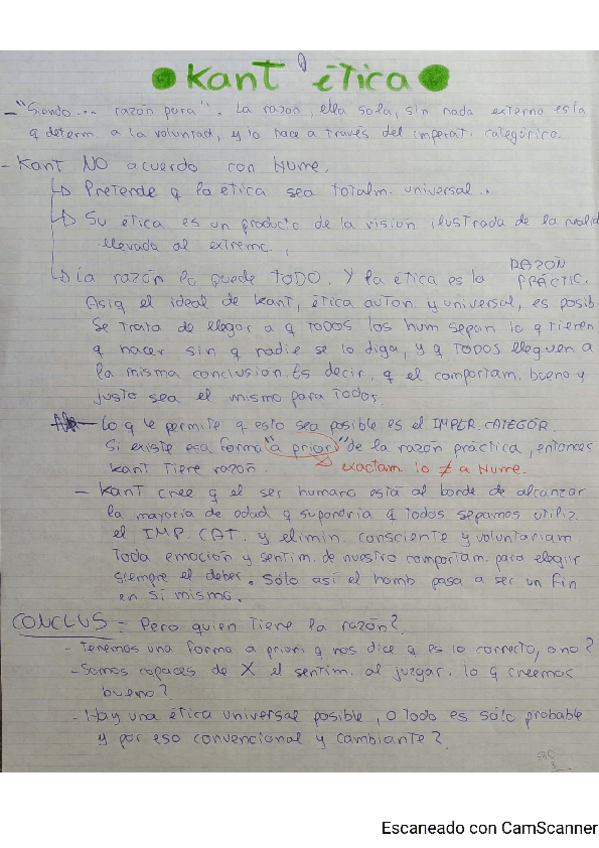 Kant ética
- "Siendo... razón pura". La razon, ella sola, sin nada externo es la
q determ. a la voluntad, y lo hace a través del imperat. categórico.
- Kant NO acuerdo con Hume.
↳ Pretende q la ética sea totalm. universal..
↳ Su ética es un producto de la visión ilustrada de la
llevada al extremo.
↳ La razón lo puede TODO. Y la ética es la RAZÓN PRÁCTIC.
Asiq el ideal de Kant, ética auton. y universal, es posib
Se trata de llegar a q TODOS los hum sepan lo q tienen
q hacer sin q nadie se lo diga, y q TODOS lleguen a
la misma conclusion. Es decir, q el comportam. bueno y
justo sea el mismo para todos.
- Lo q le permite q esto sea posible es el IMPER. CATEGÓR.
Si existe esa forma "a priori" de la razón práctica, entonces
Kant tiene razón. exactam lo ≠ a Hume.
- Kant cree q el ser humano está al borde de alcanzar
la mayoria de edad q supondria q todos sepamos utiliz.
el IMP. CAT. y elimin. consciente y voluntariam.
toda emoción y sentim. de nuestro comportam. para elegir
siempre el deber. Sólo asi el homb pasa a ser un fin
en sí mismo.
CONCLUS = Pero quien tiene la razón?
- Tenemos una forma a priori q nos dice q es lo correcto, o no?
- Somos capaces de X el sentim. al juzgar. lo q creemos
bueno?
- Hay una ética universal posible, o todo es sólo probable
y por eso convencional y cambiante?
Escaneado con CamScanner